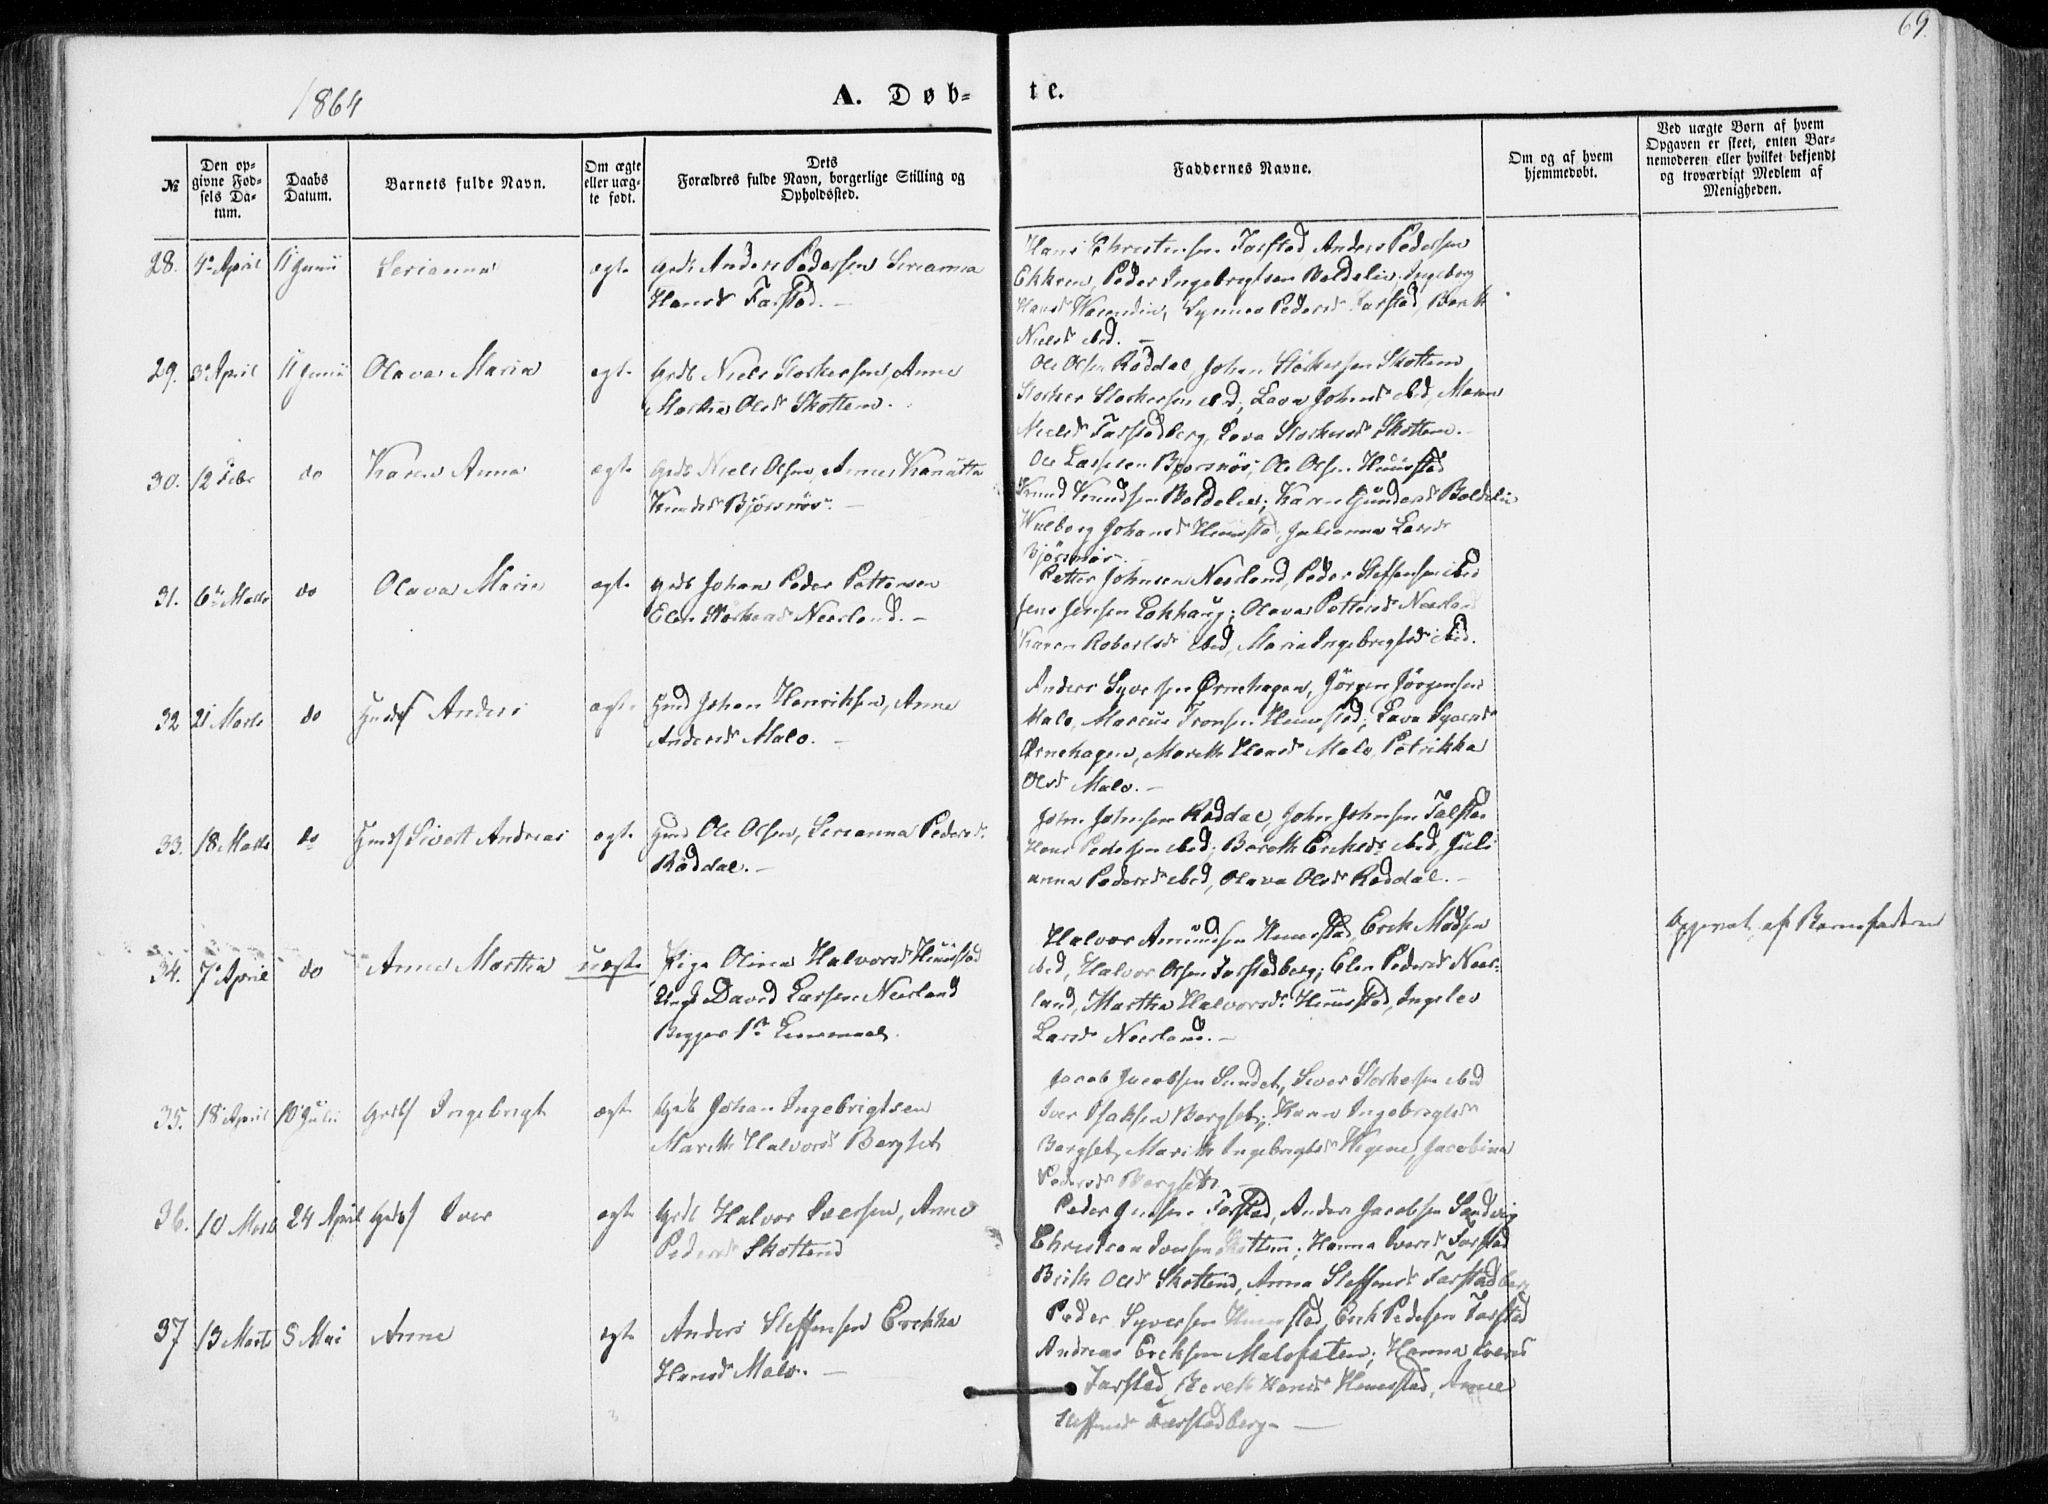 69.
1864
A. Døb-
te.
№
Den op-
givne Fød-
sels Da-
tum.
Daabs
Datum.
Barnets fulde Navn.
Om ægte
eller uæg-
te født.
Dets
Forældres fulde Navn, borgerlige Stilling og
Opholdssted.
Faddernes Navne.
Om og af hvem
hjemmedøbt.
Ved uægte Børn af hvem
Opgaven er skeet, enten Bar-
nemoderen eller hvilket bekjendt
og troværdigt Medlem af
Menigheden.
28. 4de April 11 Junii Serianna ægte Grdb Anders Pedersen Serianna
Hansd Farstad. –
Hans Christensen Farstad Anders Pedersen
Ekkren, Peder Ingebrigtsen Boldelien, Ingeborg
Hansd Synnev Pedersd Farstad, Berit
Nielsd ibid. –
29. 3die April 11 Junii Olava Maria ægte Grdb Niels Storkersen, Anne
Martha Olsd Skottem.
Ole Olsen Røddal, Johan Storkersen Skottem
Storker Storkersen ibid, Lava Johnsd ibid, Maren
Nielsd Farstadberg, Lava Storkersd Skottem. –
30. 12 Febr do Karen Anna ægte Grdb Niels Olsen, Anne Kanutta
Knudsd Bjørsnøs. –
Ole Larssen Bjørsnøs, Ole Olsen Hunstad
Knud Knudsen Boldelien; Karen Gundersd Boldelien
Wulborg Johansd Hunstad, Julianna Larsd
Bjørsnøs. –
31. 6te Marts do Olava Marie ægte Grdb Johan Peder Pettersen
Elen Storkersd Neerland. –
Petter Johnsen Neerland, Peder Steffensen ibid
Jens Jensen Eekhaug; Olava Pettersd Neerland
Karen Robertsd ibid, Maria Ingebrigtsd ibid.
32 21 Marts do Hmds Anders ægte Hmd Johan Henriksen, Anne
Andersd Malo. –
Anders Syversen Ørnehagen, Jørgen Jørgensen
Malo, Marcus Tronsen Hunstad; Lava Syversd
Ørnehagen, Marith Hansd Malo, Petrikka
Olsd Malo. –
33. 18 Marts do Hmds Sivert Andreas ægte Hmd Ole Olsen, Serianna Pedersd
Røddal. –
John Johnsen Røddal, John Johnsen Farstad
Hans Pedersen ibid; Bereth Ericksd ibid, Juli
anna Pedersd ibid, Olava Olsd Røddal. –
34. 7de April do Anne Martha uægte Pige Olina Halvorsd Hunstad
Ungk David Larsen Neerland
Begges 1ste Leiermaal.
Halvor Amundsen Hunstad, Erik Madsen
ibid, Halvor Olsen Farstadberg; Elen Pedersd Neer-
land, Martha Halvorsd Hunstad, Ingelev
Larsd Neerland. –
Opgivet af Barnefaderen
35. 18 April 10 Julii Grdbs Ingebrigt ægte Grdb Johan Ingebrigtsen
Marith Halvorsd Bergset
Jacob Jacobsen Sundet, Siver Storkersen ibid
Iver Isaksen Bergset; Karen Ingebrigtsd
Bergset, Marith Ingebrigtsd Jacobina
Pedersd Bergset. –
36. 10 Marts 24 April Grdbs Iver ægte Grdb Halvor Iversen, Anne
Pedersd Skottend
Peder Jensen Farstad, Anders Jacobsen Sandvig
Christian Iversen Skottem; Hanna Iversd Farstad
Berith Olsd Skottend, Anna Steffensd Farstadberg
37 13 Marts 5 Mai Anne ægte Anders Steffensen Erikka
Hansd Malo. –
Peder Syversen Hunstad, Erik Pedersen Farstad
Andreas Ericksen Malofeten; Hanna Iversd
Farstad, Bereth Hansd Hunstad, Anne
Steffensd Farstadberg –